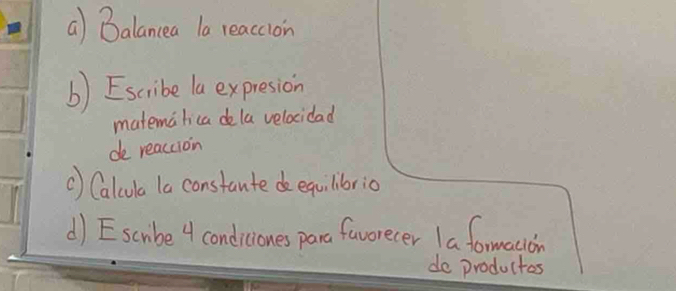 a) Balancea la reacción
b) Escribe la expresión
matemática de la velocidad
de reacción
c) Calcula la constante de equilibrio
d) Escribe 4 condiciones para favorecer la formación
de productos